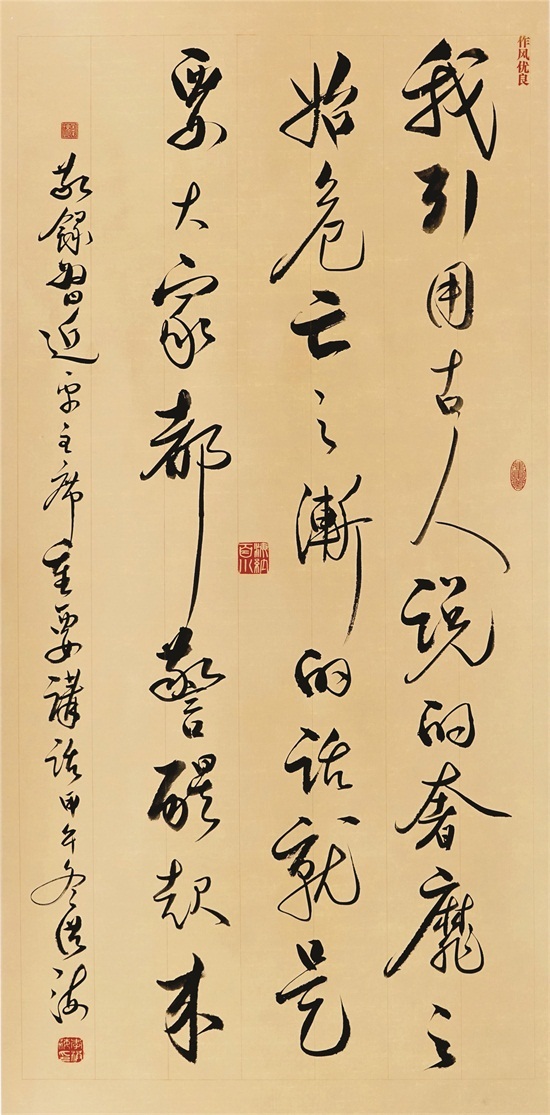 作风优良
我引用古人说的奢靡之
始危亡之渐的话就是
要大家都警醒起来
敬録習近平主席重要講話甲午冬洪海